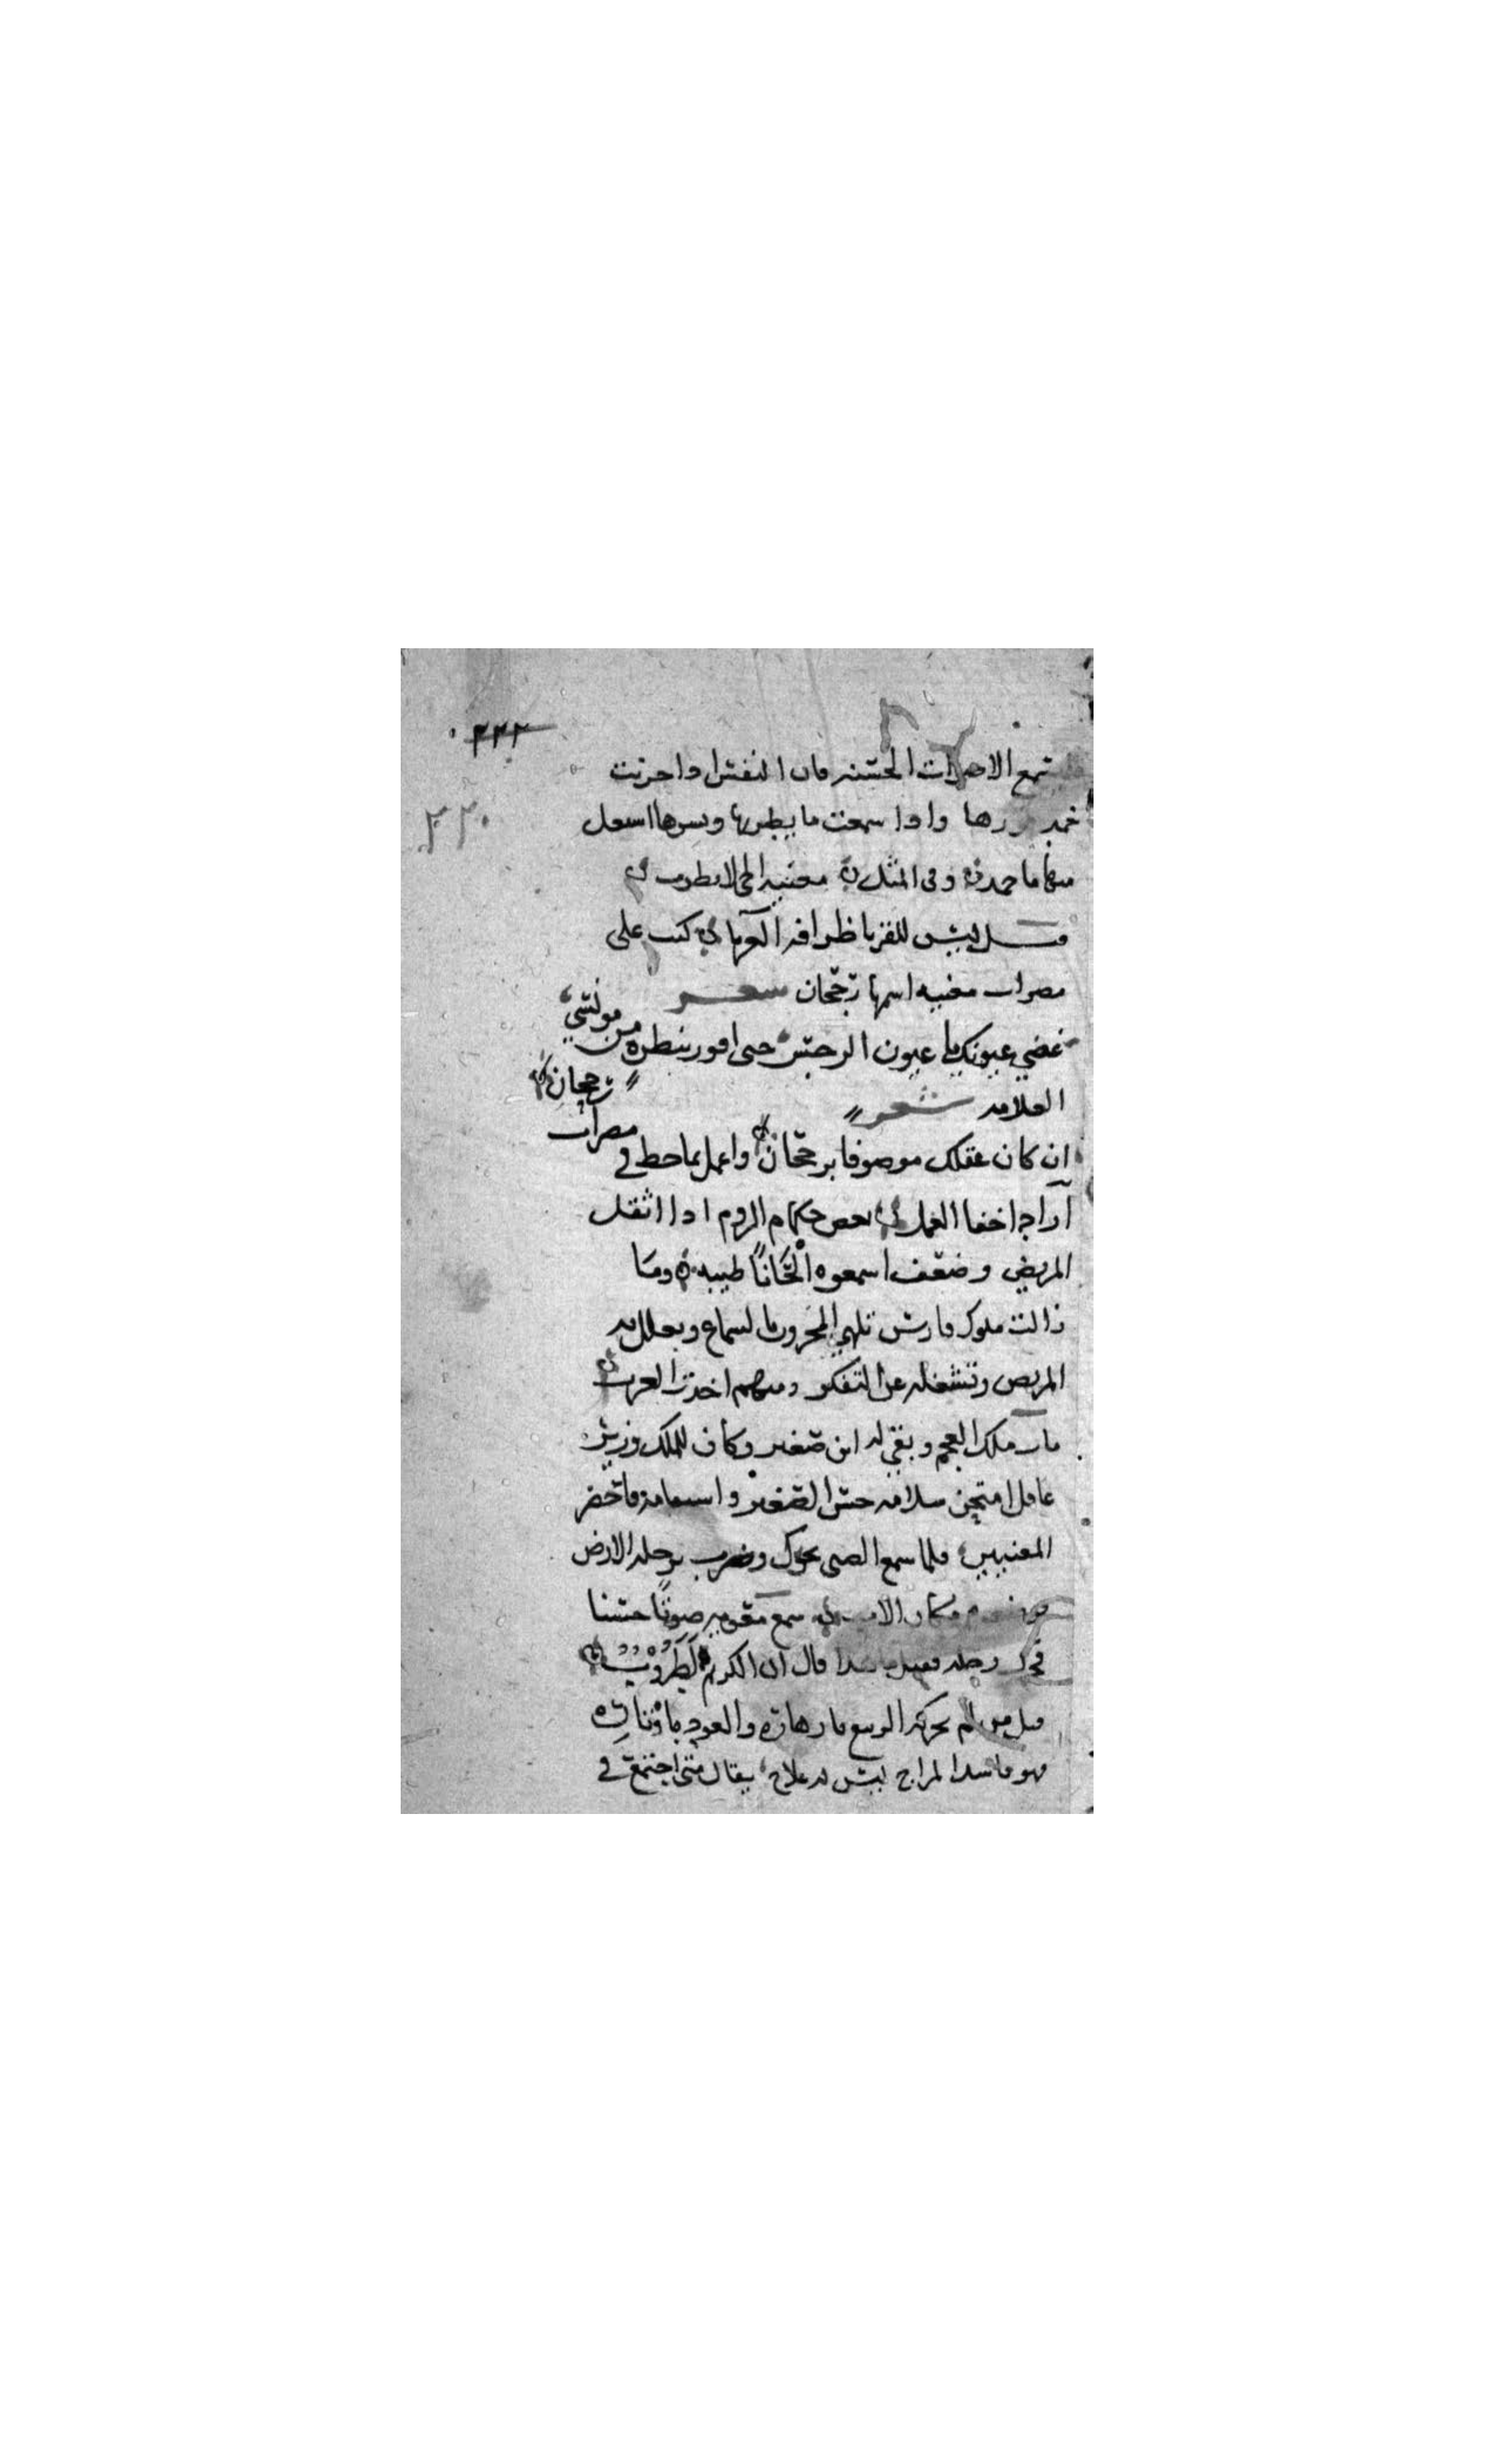 ٢٢٢
٢٢٠
الاصوات الحسنه فان النفس اذا حزنت
واذا سمعت ما يطربها ويسرها اشتعل
منها ما خمد وفى المثل مغنيه الحى لا تطرب
ليس للقز يا ظرافه كتب على
مضراب مغنيه اسمها رجحان شعر
غضي عيونك يا عيون النرجس حتى افوز بنظره من مونسي
العلامه شعر
رجحان
ان كان عقلك موصوفا برجحان واعمل بما خط في مضراب
اذا ثقل بعض حكماء الروم
المريض وضعف اسمعوه الحانا طيبه وما
زالت ملوك فارس تلهي المحزون بالسماع وتعلل به
المريض وتشغله عن التفكر ومنهم اخذت العرب
مات ملك العجم وبقي له ابن صغير وكان للملك وزير
عاقل امتحن سلامه حس الصغير واستقامته فاحضر
المغنيين فلما سمع الصبى تحرك وضرب برجله الارض
سمع صوتا حسنا
رجله قال ان الكريم لطروب
قيل من لم يحركه الربيع بازهاره والعود باوتاره
فهو فاسد المزاج ليس له علاج يقال متى اجتمع في